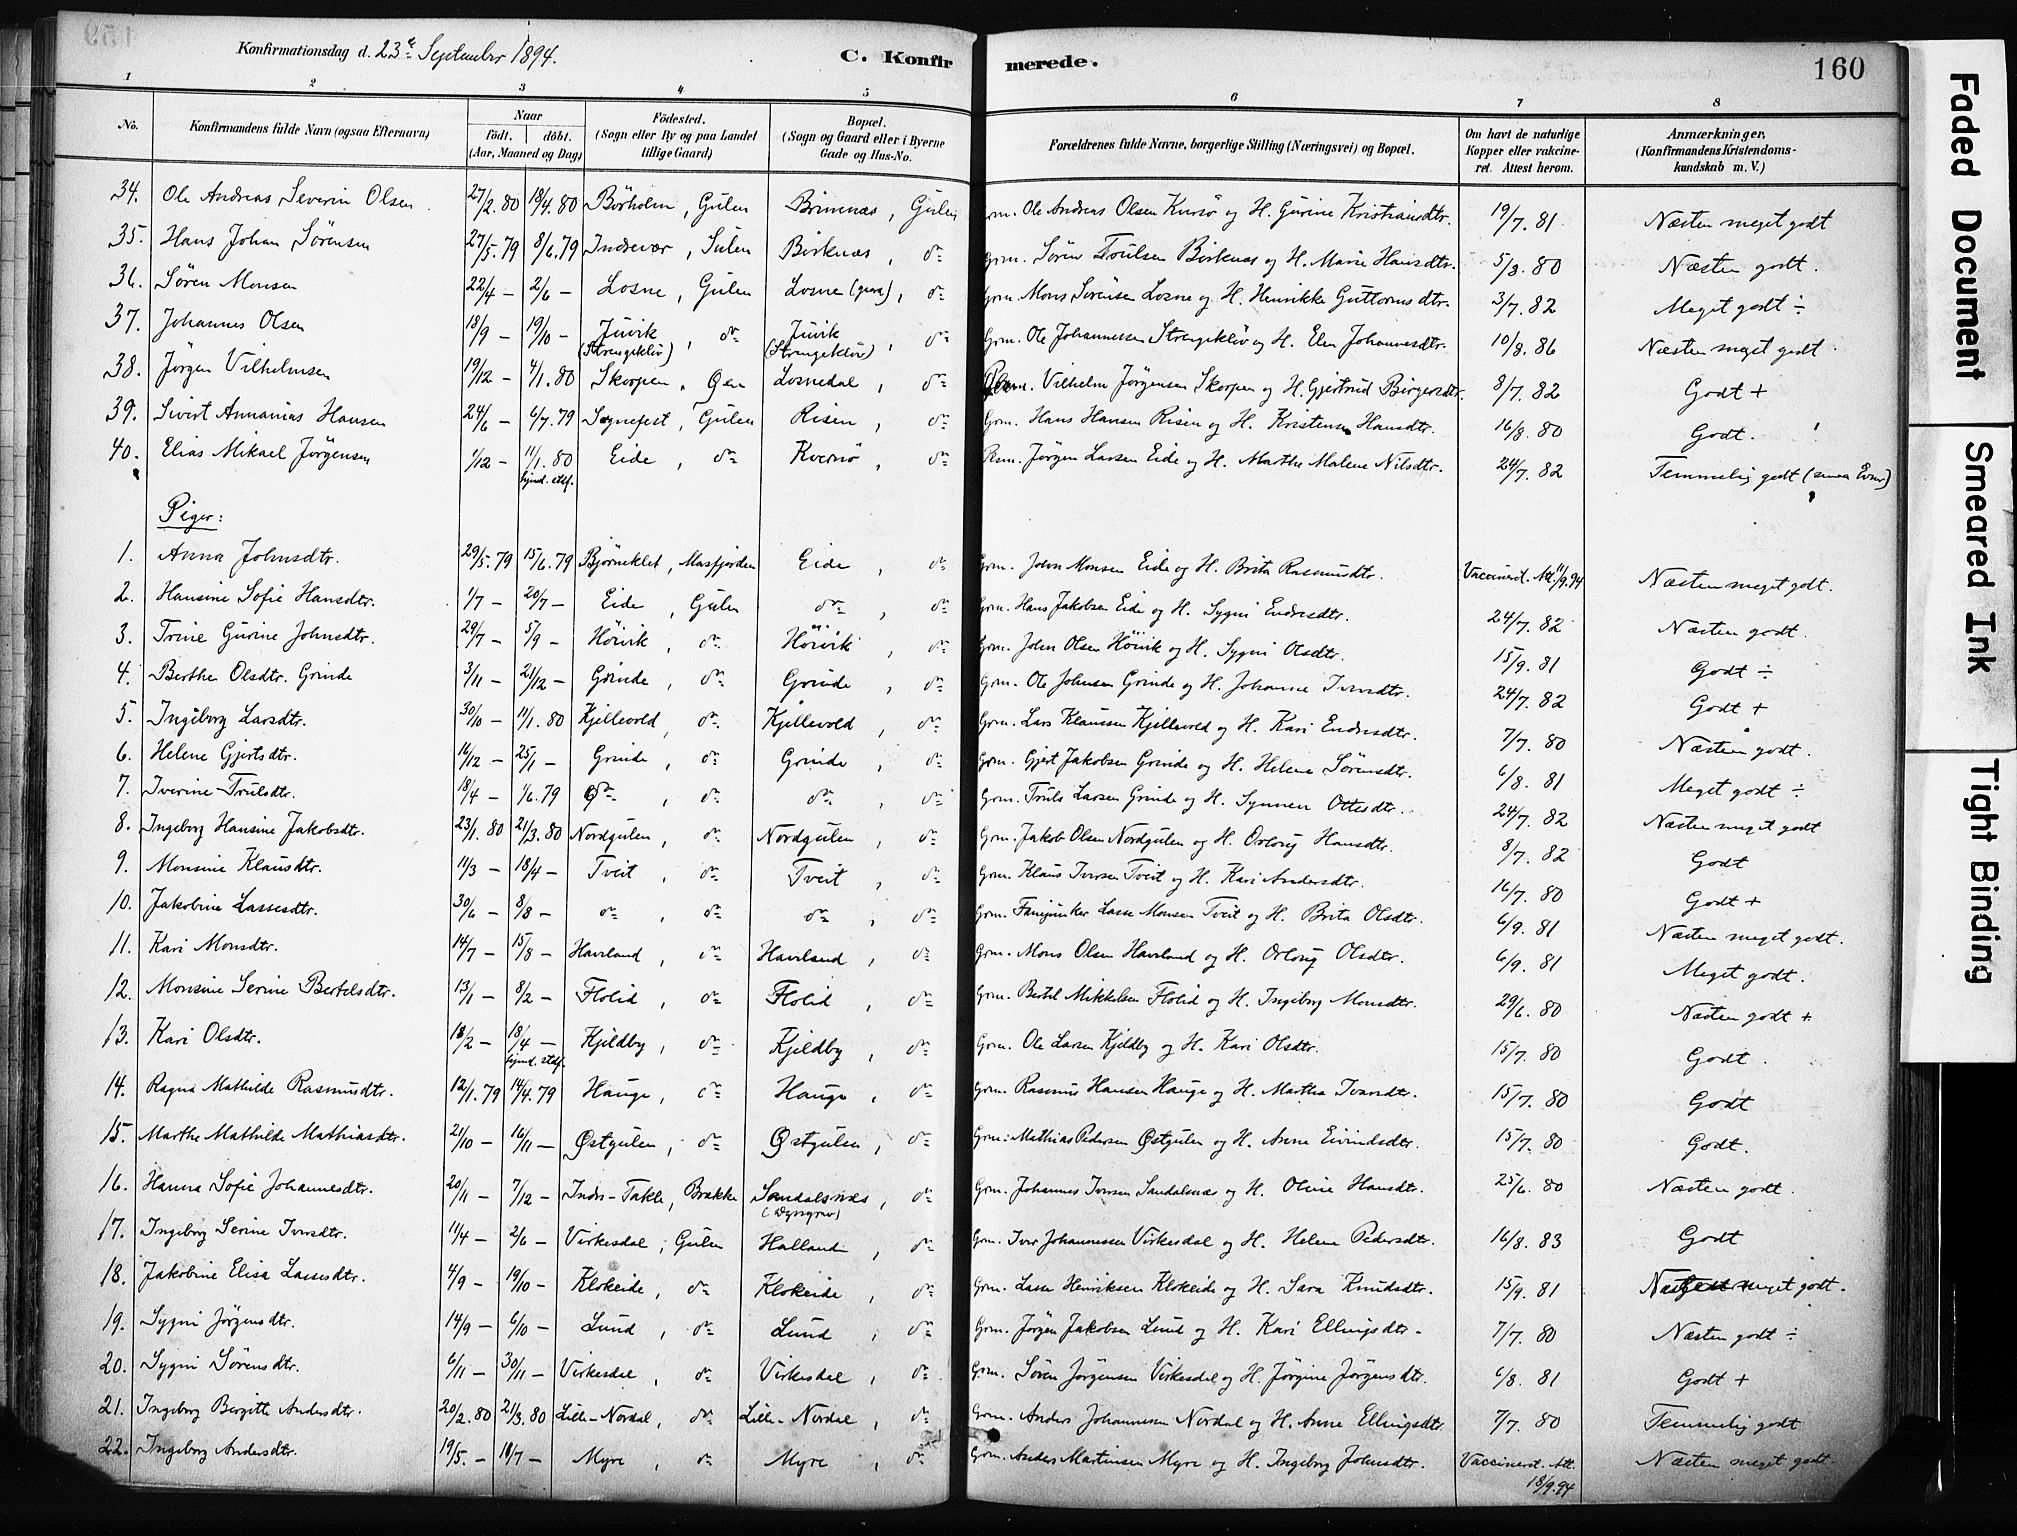 Konfirmationsdag d. 23de September 1894. C. Konfirmerede. 160
1 2 3 4 5 6 7 8
No. Konfirmandens fulde Navn (ogsaa Efternavn) Naar födt. döbt. (Aar, Maaned og Dag) Födested. (Sogn eller By og paa Landet tillige Gaard) Bopæl. (Sogn og Gaard eller i Byerne Gade og Hus-No. Forældrenes fulde Navne, borgerlige Stilling (Næringsvei) og Bopæl. Om havt de naturlige Kopper eller vakcineret. Attest herom. Anmærkninger. (Konfirmandens Kristendomskundskab m. V.)
34. Ole Andreas Severin Olsen 27/2.80 18/4.80 Börholm, Gulen Brinenæs, Gulen Grm. Ole Andreas Olsen Kursö og H. Gurine Kristiansdtr. 19/7. 81 Næsten meget godt
35. Hans Johan Sörensen 27/5.79 8/6.79 Indrevær, Sulen Birknæs, do Grm. Sören Troulsen Birknæs og H. Marie Hansdtr. 5/8. 80 Næsten godt.
36. Sören Monsen 22/4 – 2/6 – Losne, Gulen Losne, do Grm. Mons Sörensen Losne og H. Henrikke Guttormsdtr. 3/7. 82 Meget godt ÷
37. Johannes Olsen 18/9 – 19/10 – Juvik (Strengeklöv), do Juvik (Strengeklöv), do Grm. Ole Johannessen Strengeklöv og H. Elen Johannesdtr. 10/8. 86 Næsten meget godt.
38. Jörgen Vilhelmsen 19/12 – 4/1.80 Skorpen, Losnedal, do Vilhelm Jörgensen Skorpen og H. Gjertrud Birgersdtr. 8/7. 82 Godt +
39. Sivert Annanias Hansen 24/6 – 6/7.79 Sognefest, Gulen Risen, do Grm. Hans Hansen Risen og H. Kristense Hansdtr. 16/8. 80 Godt.
40. Elias Mikael Jörgensen 1/12 – 11/1.80 hjmd. stdf. Eide, do Kversö, do Jörgen Larsen Eide og H. Marthe Malene Nilsdtr. 24/7. 82 Temmelig godt (smaa Evner)
Piger:
1. Anna Johnsdtr. 29/5.79 15/6.79 Björneklet, Masfjorden Eide, do Grm. John Monsen Eide og H. Brita Rasmusdtr. Vaccinerd. Att 11/9.94 Næsten meget godt.
2. Hansine Sofie Hansdtr. 1/7 – 20/7 – Eide, Gulen do, do Grm. Hans Jakobsen Eide og H. Sygni Endresdtr. 24/7. 82 Næsten godt.
3. Trine Gurine Johnsdtr. 29/7 – 5/9 – Höivik, do Höivik, do Grm. John Olsen Höivik og H. Sygni Olsdtr. 15/9. 81 Godt ÷
4. Berthe Olsdtr. Grinde 3/11 – 21/12 – Grinde, do Grinde, do Grm. Ole Johnsen Grinde og H. Johanne Iversdtr. 24/7. 82 Godt +
5. Ingeborg Larsdtr. 30/10 – 11/1.80 Kjellevold, do Kjellevold, do Grm. Lars Klaussen Kjellevold og H. Kari Endresdtr. 7/7. 80 Næsten godt.
6. Helene Gjertsdtr. 16/12 – 25/1 – Grinde, do Grinde, do Grm. Gjert Jakobsen Grinde og H. Helene Sörensdtr. 6/8. 81 Meget godt ÷
7. Iverine Trulsdtr. 18/4 – 1/6.79 do, do do, do Grm. Truls Larsen Grinde og H. Synneve Ottesdtr. 24/7. 82 Næsten meget godt
8. Ingeborg Hansine Jakobsdtr. 23/1.80 21/3.80 Nordgulen, do Nordgulen, do Grm. Jakob Olsen Nordgulen og H. Orloug Hansdtr. 8/7. 82 Godt
9. Monsine Klausdtr. 11/3 – 18/4 – Tveit, do Tveit, do Grm. Klaus Iversen Tveit og H. Kari Andersdtr. 16/7. 80 Godt +
10. Jakobine Lassesdtr. 30/6 – 8/8 – do, do do, do Grm. Fanejunker Lasse Monsen Tveit og H. Brita Olsdtr. 6/9. 81 Næsten meget godt.
11. Kari Monsdtr. 14/7 – 15/8 – Haveland, do Haveland, do Grm. Mons Olsen Haveland og H. Orloug Olsdtr. 6/9. 81 Meget godt.
12. Monsine Serine Bertelsdtr. 13/1 – 8/2 – Flolid, do Flolid, do Grm. Bertel Mikkelsen Flolid og H. Ingeborg Monsdtr. 29/6. 80 Næsten godt +
13. Kari Olsdtr. 18/2 – 18/4 – hjmd. stdf. Kjeldby, do Kjeldby, do Grm. Ole Larsen Kjeldby og H. Kari Olsdtr. 15/7. 80 Godt.
14. Ragna Mathilde Rasmusdtr. 12/1.79 14/4.79 Hauge, do Hauge, do Grm. Rasmus Hansen Hauge og H. Martha Ivarsdtr. 15/7. 80 Godt
15. Marthe Mathilde Mathiasdtr. 21/10 – 16/11 – Östgulen, do Östgulen, do Grm. Mathias Pedersen Östgulen og H. Anne Eivindsdtr. 15/7. 80 Godt.
16. Hanna Sofie Johannesdtr. 20/11 – 7/12 – Indre-Takle, Brække Sandalsnæs, do Grm. Johannes Iversen Sandalsnæs og H. Oline Hansdtr. 25/6. 80 Næsten godt.
17. Ingeborg Serine Iversdtr. 11/4 – 2/6 – Virkesdal, Gulen Halland, do Grm. Iver Johannessen Virkesdal og H. Helene Pedersdtr. 16/8. 83 Godt
18. Jakobine Elisa Lassesdtr. 4/9 – 19/10 – Klokeide, do Klokeide, do Grm. Lasse Henriksen Klokeide og H. Sara Knudsdtr. 15/9. 81 meget godt.
19. Sygni Jörgensdtr. 14/9 – 6/10 – Lund, do Lund, do Grm. Jörgen Jakobsen Lund og H. Kari Ellingsdtr. 7/7. 80 Næsten godt ÷
20. Sygni Sörensdtr. 6/11 – 30/11 – Virkesdal, do Virkesdal, do Grm. Sören Jörgensen Virkesdal og H. Jörgine Jörgensdtr. 6/8. 81 Godt +
21. Ingeborg Birgitte Andersdtr. 20/2.80 21/3.80 Lille-Nordal, do Lille-Nordal, do Grm. Anders Johannessen Nordal og H. Anne Ellingsdtr. 7/7. 80 Temmelig godt
22. Ingeborg Andersdtr. 19/5. – 18/7 – Myre, do Myre, do Grm. Anders Martinsen Myre og H. Ingeborg Johnsdtr. Vaccinerd. Att. 18/9.94 Næsten meget godt
Faded Document
Smeared Ink
Tight Binding